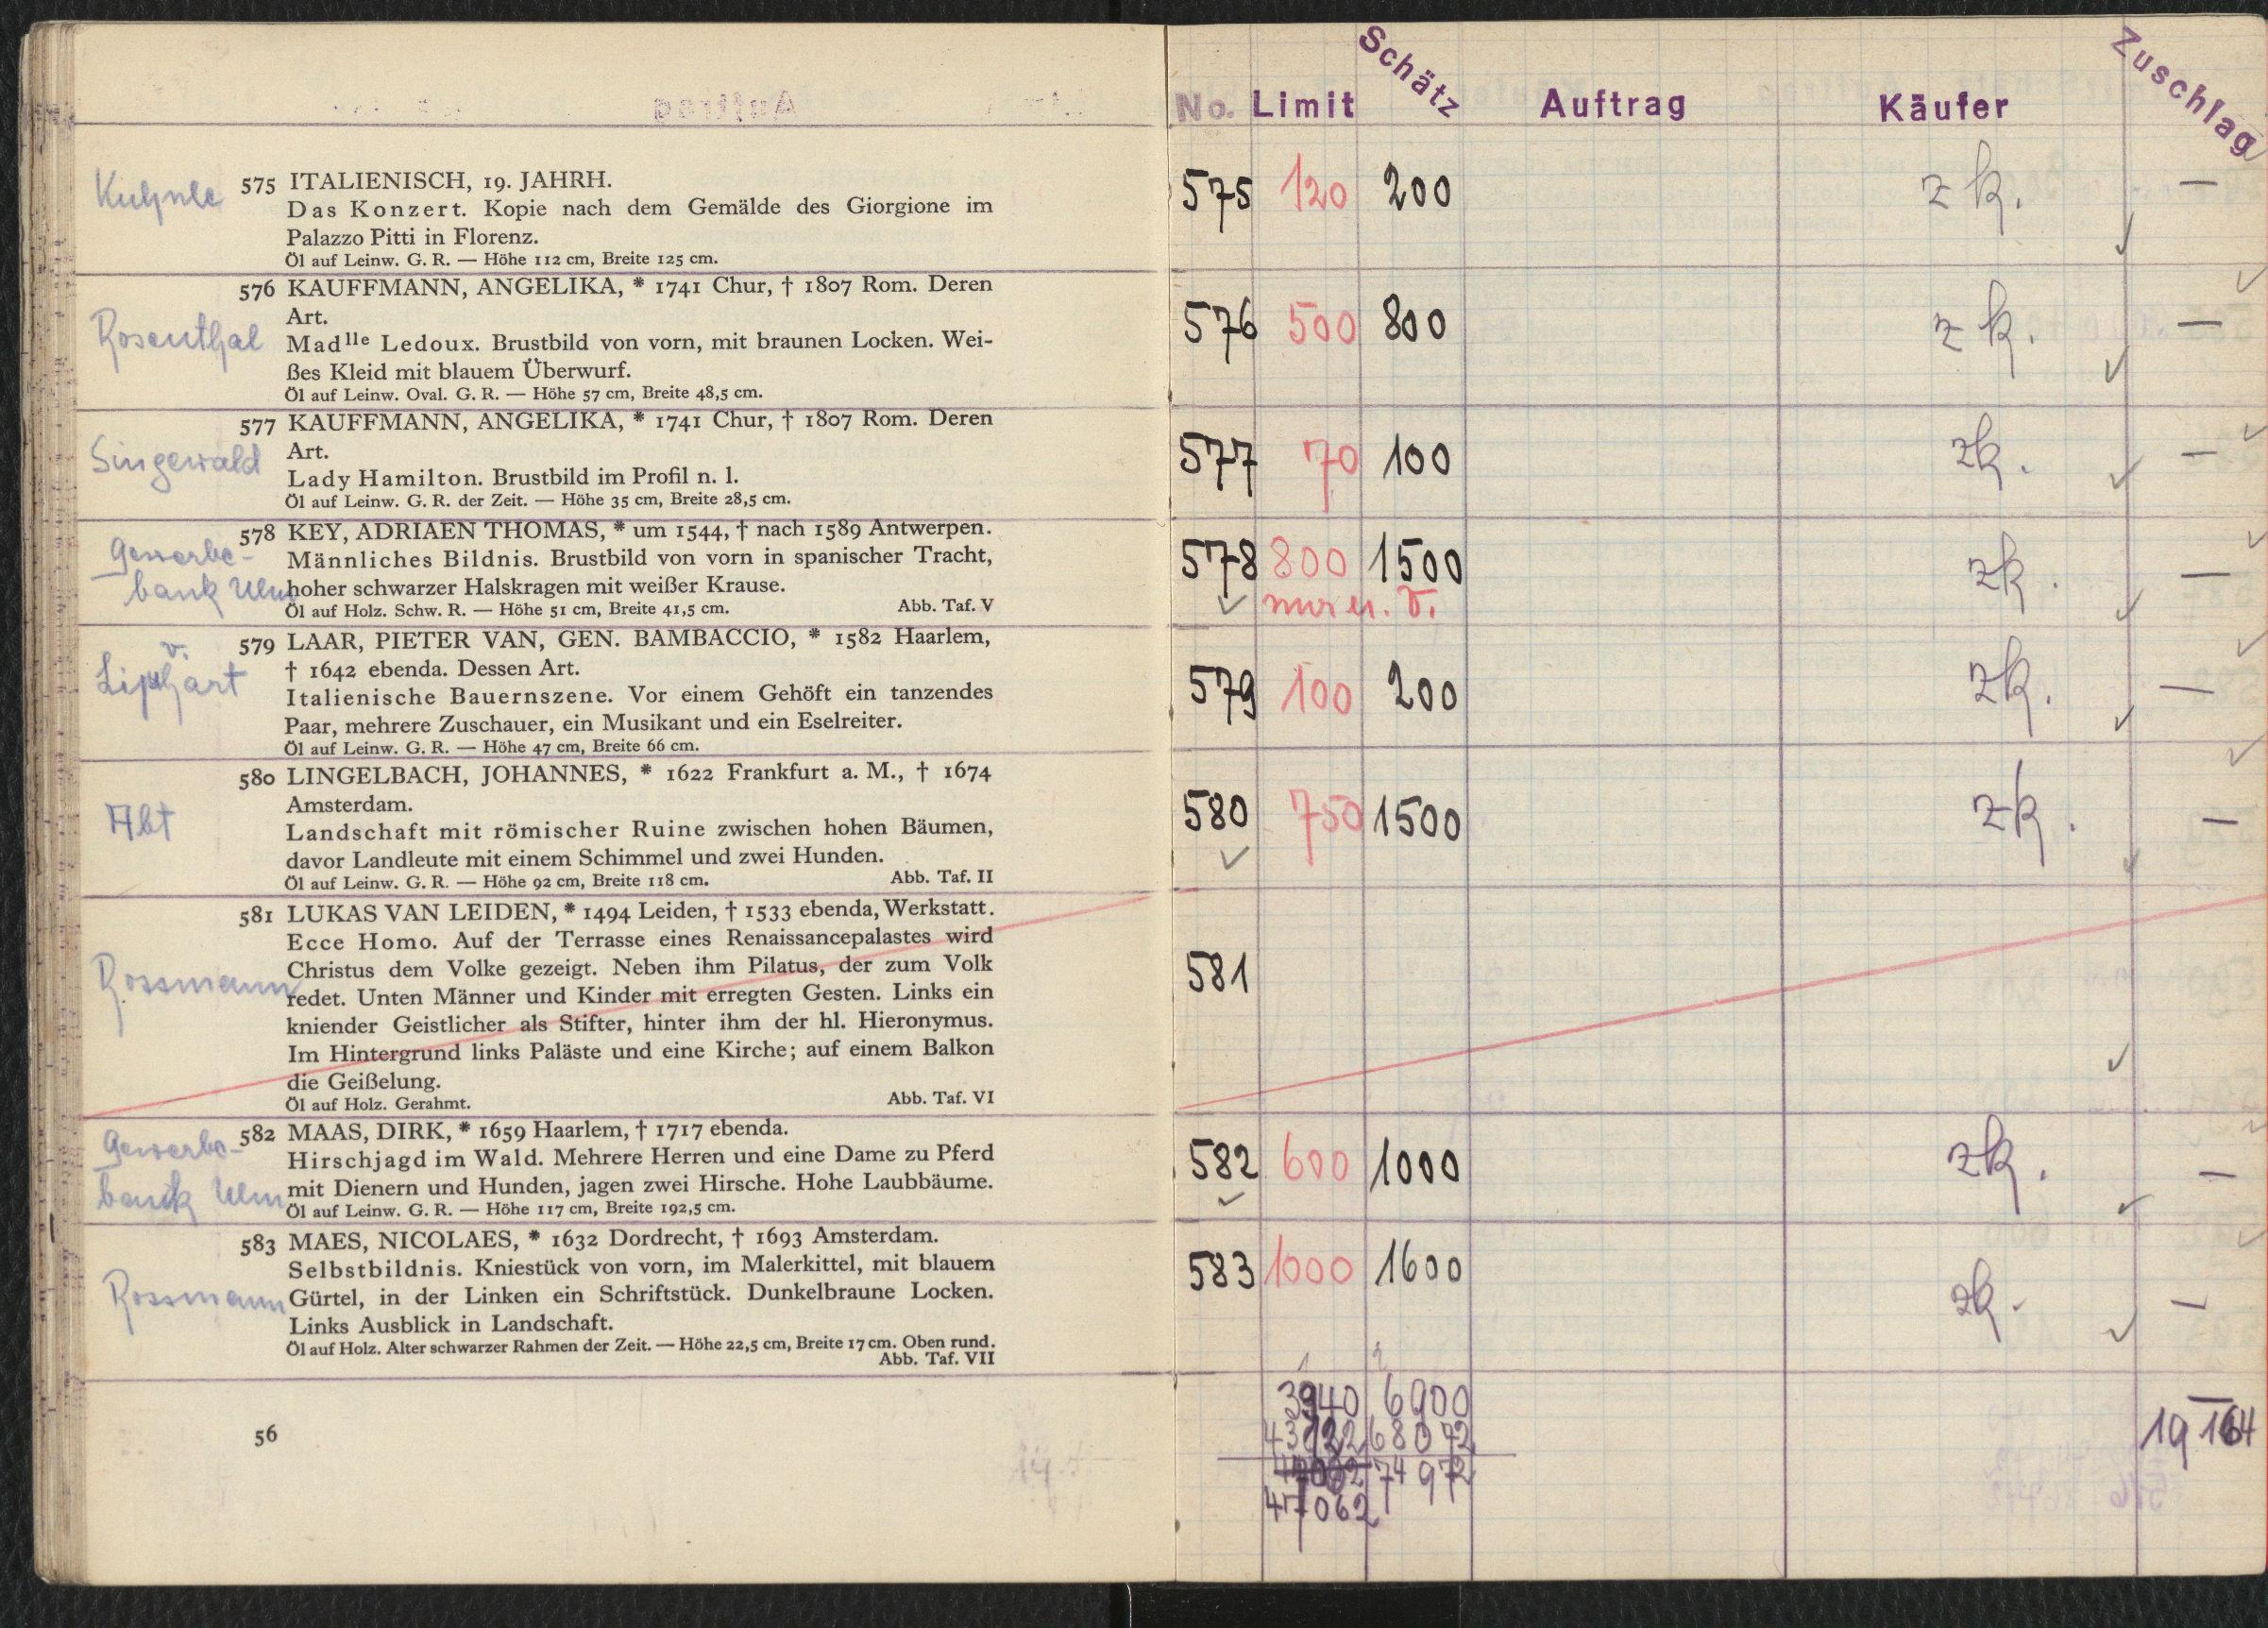 Kuhnle
575 ITALIENISCH, 19. JAHRH.
Das Konzert. Kopie nach dem Gemälde des Giorgione im
Palazzo Pitti in Florenz.
Öl auf Leinw. G. R. — Höhe 112 cm, Breite 125 cm.
Rosenthal
576 KAUFFMANN, ANGELIKA, * 1741 Chur, † 1807 Rom. Deren
Art.
Madlle Ledoux. Brustbild von vorn, mit braunen Locken. Wei-
ßes Kleid mit blauem Überwurf.
Öl auf Leinw. Oval. G. R. — Höhe 57 cm, Breite 48,5 cm.
Singewald
577 KAUFFMANN, ANGELIKA, * 1741 Chur, † 1807 Rom. Deren
Art.
Lady Hamilton. Brustbild im Profil n. l.
Öl auf Leinw. G. R. der Zeit. — Höhe 35 cm, Breite 28,5 cm.
Gewerbe-
bank Ulm
578 KEY, ADRIAEN THOMAS, * um 1544, † nach 1589 Antwerpen.
Männliches Bildnis. Brustbild von vorn in spanischer Tracht,
hoher schwarzer Halskragen mit weißer Krause.
Öl auf Holz. Schw. R. — Höhe 51 cm, Breite 41,5 cm. Abb. Taf. V
v.
Liphart
579 LAAR, PIETER VAN, GEN. BAMBACCIO, * 1582 Haarlem,
† 1642 ebenda. Dessen Art.
Italienische Bauernszene. Vor einem Gehöft ein tanzendes
Paar, mehrere Zuschauer, ein Musikant und ein Eselreiter.
Öl auf Leinw. G. R. — Höhe 47 cm, Breite 66 cm.
Abt
580 LINGELBACH, JOHANNES, * 1622 Frankfurt a. M., † 1674
Amsterdam.
Landschaft mit römischer Ruine zwischen hohen Bäumen,
davor Landleute mit einem Schimmel und zwei Hunden.
Öl auf Leinw. G. R. — Höhe 92 cm, Breite 118 cm. Abb. Taf. II
Rossmann
581 LUKAS VAN LEIDEN, * 1494 Leiden, † 1533 ebenda, Werkstatt.
Ecce Homo. Auf der Terrasse eines Renaissancepalastes wird
Christus dem Volke gezeigt. Neben ihm Pilatus, der zum Volk
redet. Unten Männer und Kinder mit erregten Gesten. Links ein
kniender Geistlicher als Stifter, hinter ihm der hl. Hieronymus.
Im Hintergrund links Paläste und eine Kirche; auf einem Balkon
die Geißelung.
Öl auf Holz. Gerahmt. Abb. Taf. VI
Gewerbe-
bank Ulm
582 MAAS, DIRK, * 1659 Haarlem, † 1717 ebenda.
Hirschjagd im Wald. Mehrere Herren und eine Dame zu Pferd
mit Dienern und Hunden, jagen zwei Hirsche. Hohe Laubbäume.
Öl auf Leinw. G. R. — Höhe 117 cm, Breite 192,5 cm.
Rossmann
583 MAES, NICOLAES, * 1632 Dordrecht, † 1693 Amsterdam.
Selbstbildnis. Kniestück von vorn, im Malerkittel, mit blauem
Gürtel, in der Linken ein Schriftstück. Dunkelbraune Locken.
Links Ausblick in Landschaft.
Öl auf Holz. Alter schwarzer Rahmen der Zeit. — Höhe 22,5 cm, Breite 17 cm. Oben rund.
Abb. Taf. VII
56
No. Limit Schätz Auftrag Käufer Zuschlag
575 120 200 zk. —
576 500 800 zk. —
577 70 100 zk. —
578 800 1500 zk. —
nur u. V.
579 100 200 zk. —
580 750 1500 zk. —
581
582 600 1000 zk. —
583 1000 1600 zk. —
3940 6900
43122 68072
74972
47062
19164